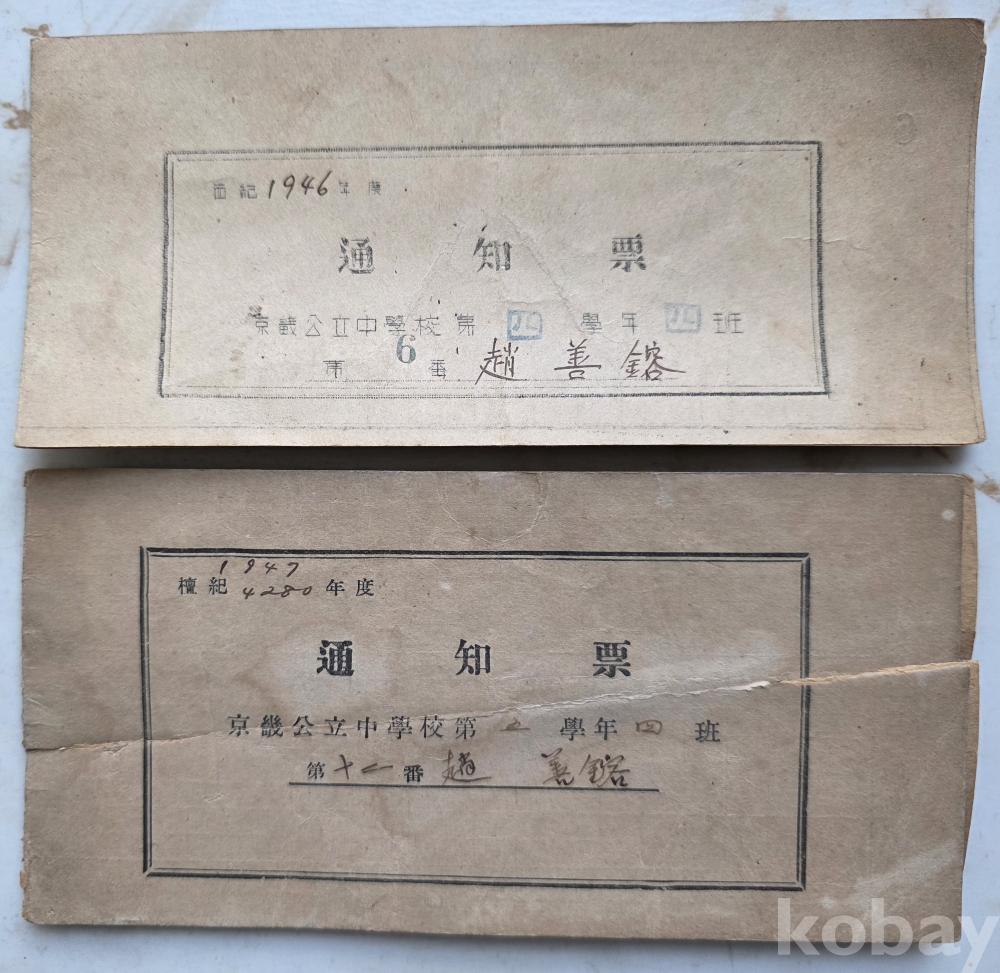 西紀1946年度
通知票
京畿公立中學校第四學年四班
第6番 趙善鎔
1947
檀紀4280年度
通知票
京畿公立中學校第五學年四班
第十二番 趙善鎔
kobay